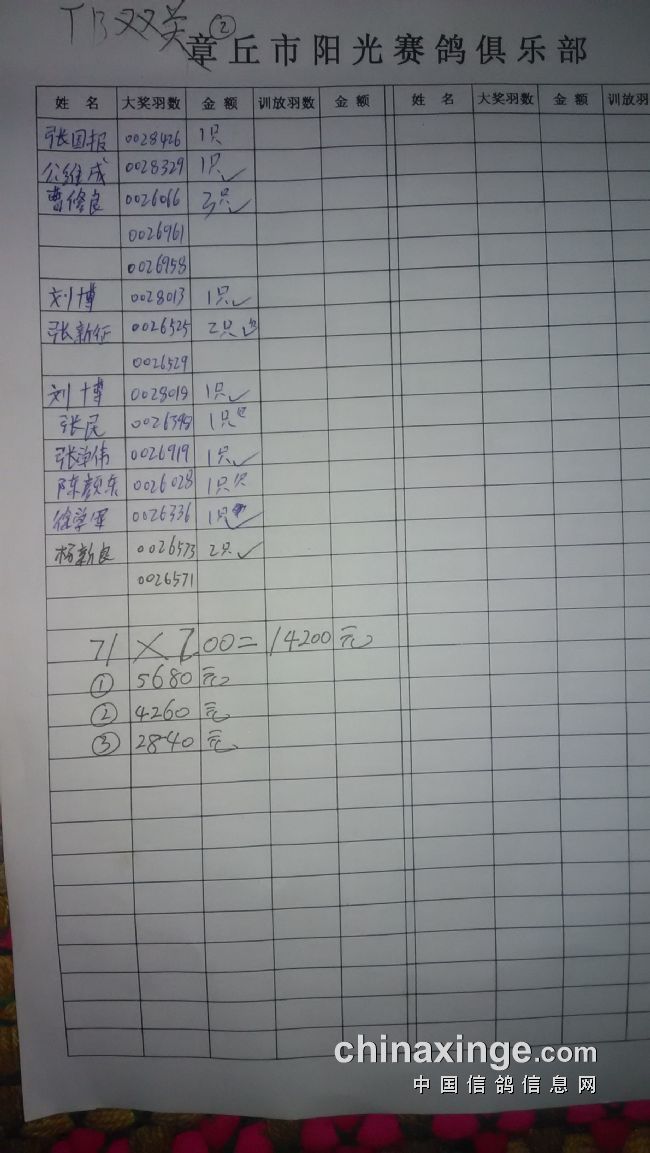 TB双双关 ②
章丘市阳光赛鸽俱乐部
姓 名 大奖羽数 金 额 训放羽数 金 额 姓 名 大奖羽数 金 额 训放羽
张国报 0028426 1只
公维成 0028329 1只✓
曹修良 0026066 3只✓
0026961
0026958
刘博 0028013 1只✓
张新征 0026525 2只
0026529
刘博 0028019 1只✓
张民 0026398 1只
张单伟 0026919 1只✓
陈颜东 0026028 1只
徐学军 0026336 1只✓
杨新良 0026573 2只✓
0026571
71×200=14200元
① 5680元
② 4260元
③ 2840元
chinaxinge.com
中国信鸽信息网